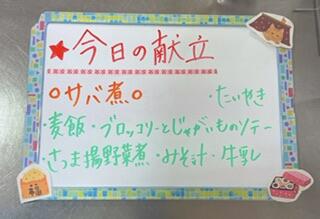 ★今日の献立
○サバ煮○ ・たいやき
麦飯・ブロッコリーとじゃがいものソテー
・さつま揚野菜煮・みそ汁・牛乳
福